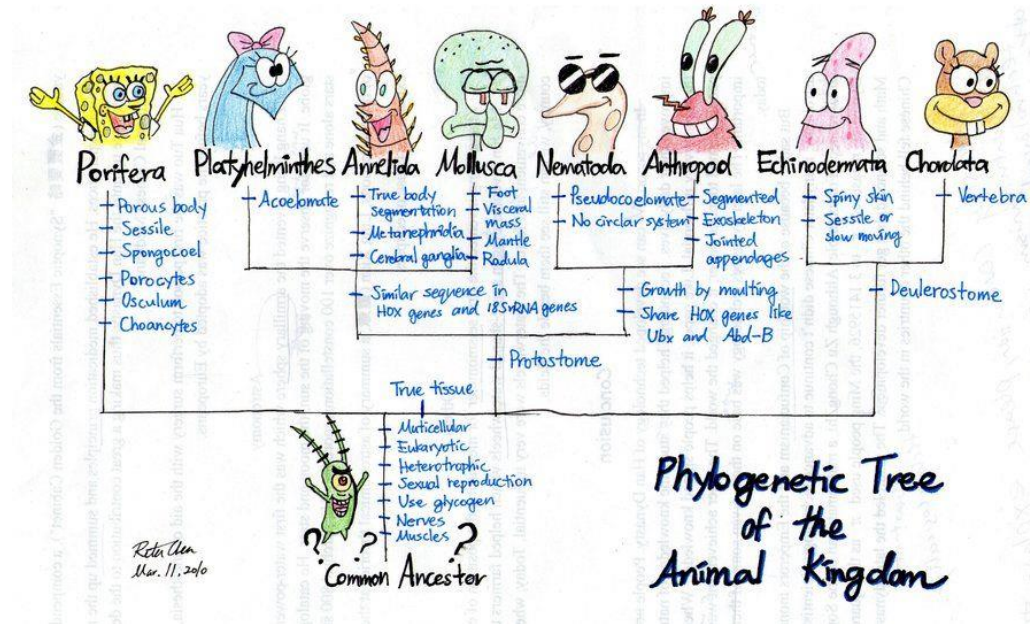 Porifera
Platyhelminthes
Annelida
Mollusca
Nematoda
Anthropod
Echinodermata
Chordata
Porous body
Sessile
Spongocoel
Porocytes
Osculum
Choancytes
Acoelomate
True body
segmentation
Metanephridia
Cerebral ganglia
Foot
Visceral
mass
Mantle
Radula
Pseudocoelomate
No circlar system
Segmented
Exoskeleton
Jointed
appendages
Spiny skin
Sessile or
slow moving
Vertebra
Similar sequence in
HOX genes and 18SrRNA genes
Growth by moulting
Share HOX genes like
Ubx and Abd-B
Deulerostome
Protostome
True tissue
Muticellular
Eukaryotic
Heterotrophic
Sexual reproduction
Use glycogen
Nerves
Muscles
? ? ?
Common Ancestor
Phylogenetic Tree
of the
Animal Kingdom
Mar. 11, 2010